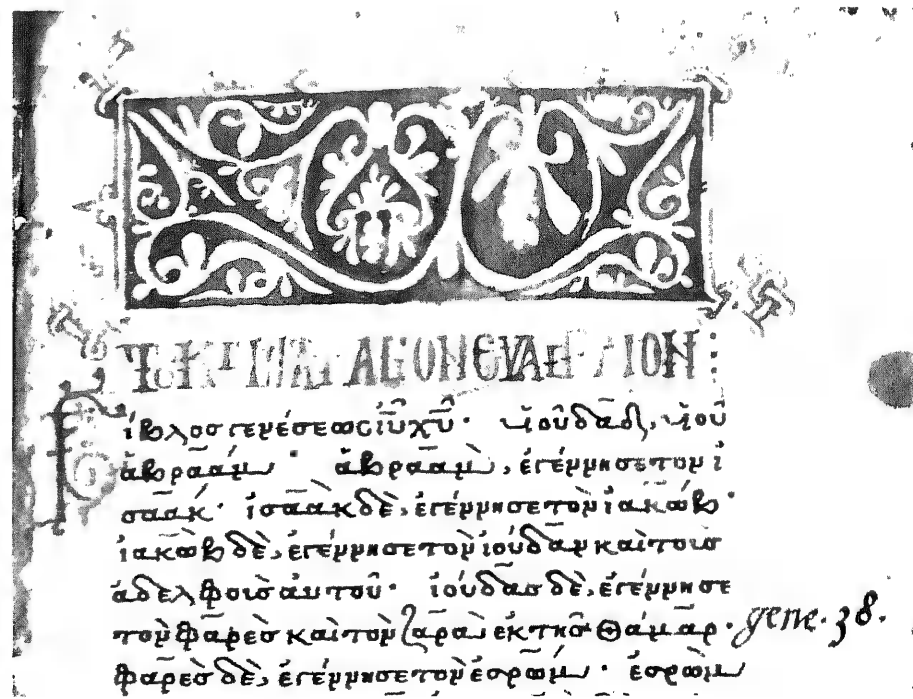 ΑΓΙΟΝ ΕΥΑΓΓΕΛΙΟΝ :
Βίβλος γενέσεως ἰ̅υ̅ χ̅υ̅· ὑιοῦ δα̅δ, ὑιοῦ
ἀβραάμ· ἀβραὰμ, ἐγέννησε τὸν ἰ
σαάκ· ἰσαὰκ δὲ, ἐγέννησε τὸν ἰακώβ·
ἰακὼβ δὲ, ἐγέννησε τὸν ἰούδαν καὶ τοὺς
ἀδελφοὺς αὐτοῦ· ἰούδας δὲ, ἐγέννησε
τὸν φαρὲς καὶ τὸν ζαρὰ ἐκ τῆς θάμαρ· gene. 38.
φαρὲς δὲ, ἐγέννησε τὸν ἐσρώμ· ἐσρὼμ